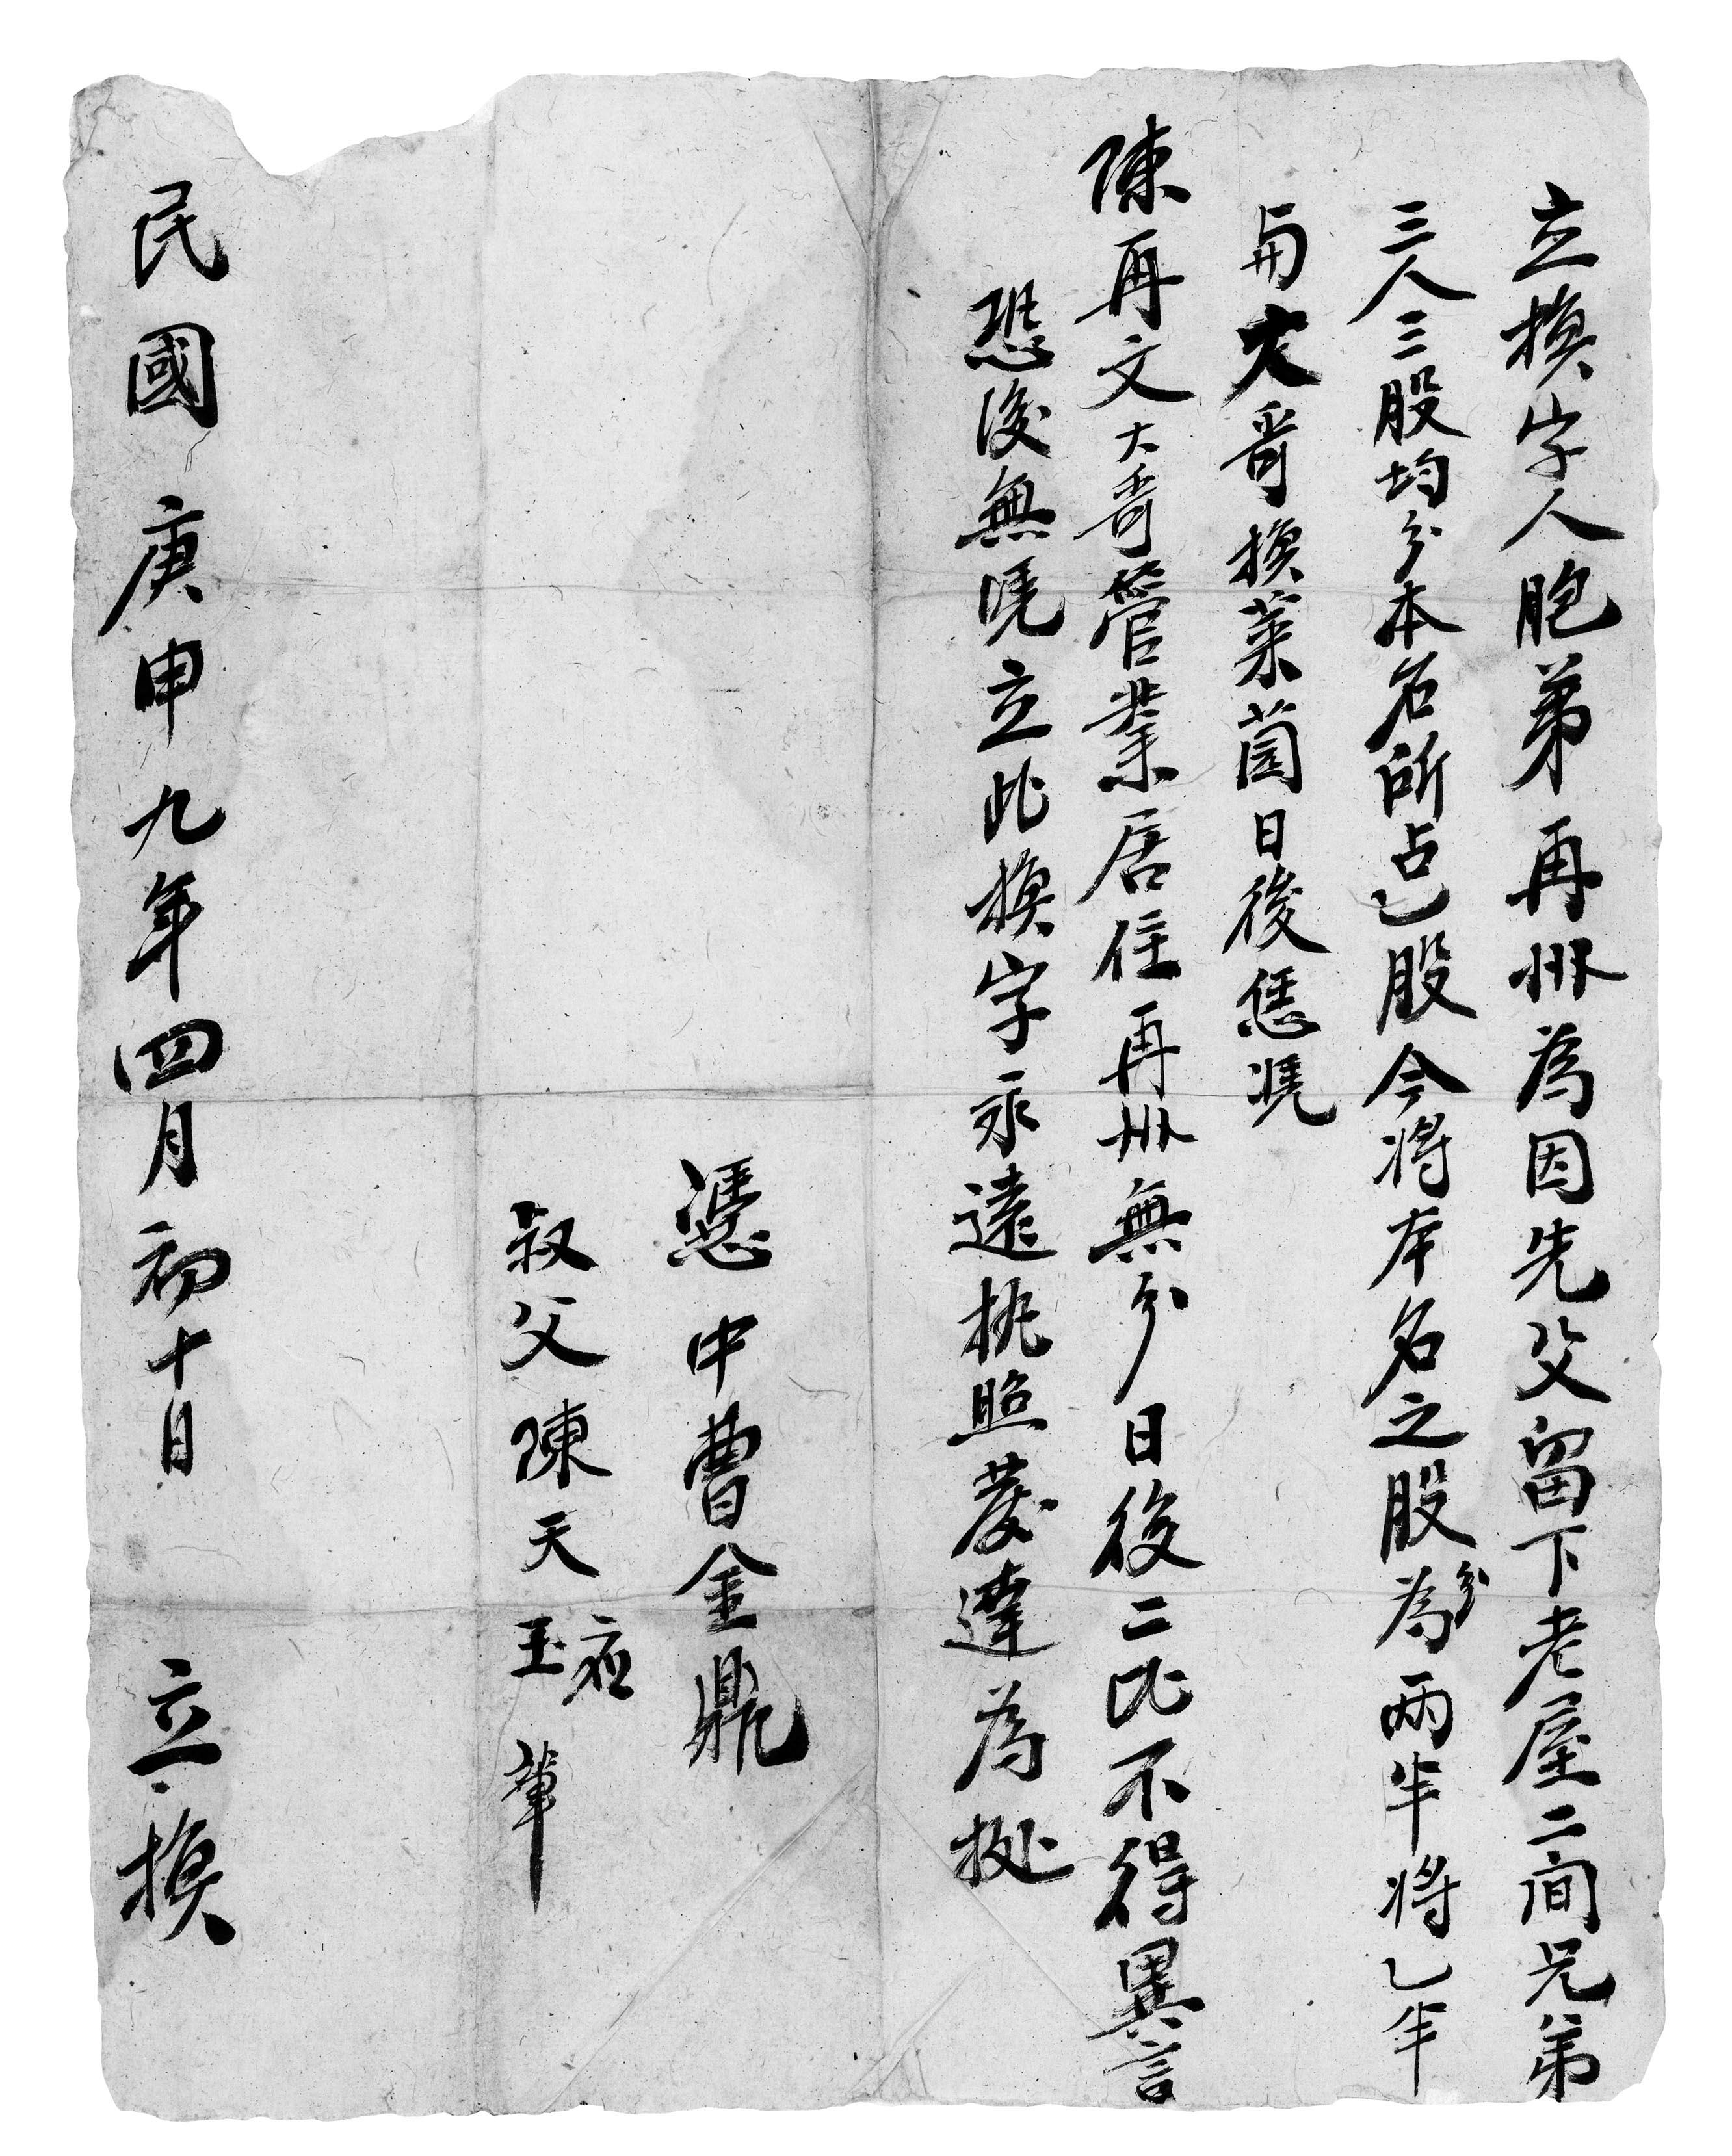 立換字人胞弟再州為因先父留下老屋二间兄弟
三人三股均分本名所占乙股今将本名之股分為兩半将乙半
与大哥換菜園日後恁凴
陳再文大哥管業居住再州無分日後二比不得異言
恐後無凴立此換字永遠执照發達為挀
憑中曹金鼎
叔父陳天應玉筆
民國庚申九年四月初十日 立換